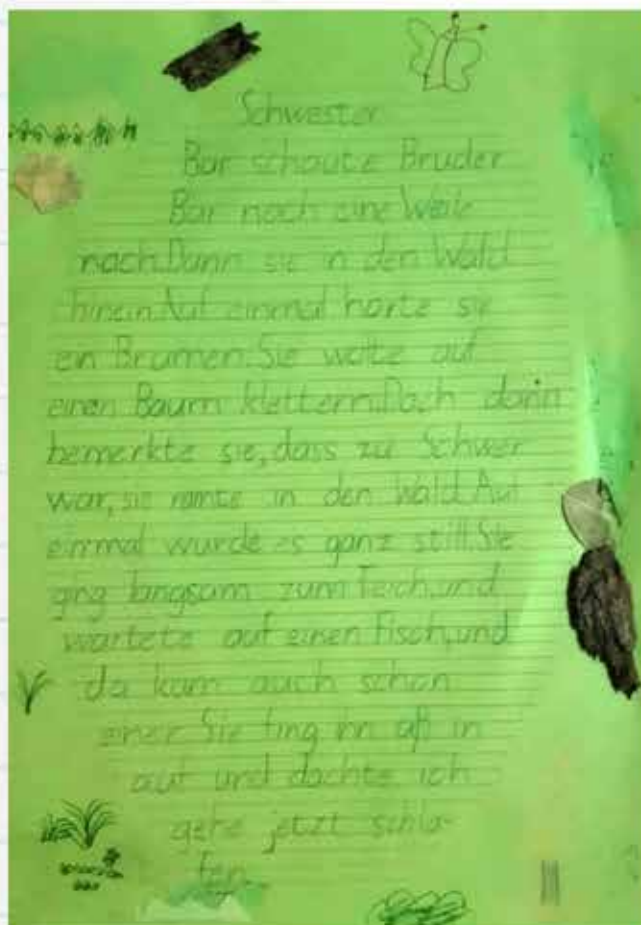 Schwester
Bär schaute Bruder
Bär noch eine Weile
nach.Dann sie in den Wald
hinein.Auf einmal hörte sie
ein Brumen.Sie wolte auf
einen Baum klettern.Doch dann
bemerkte sie, dass zu Schwer
war, sie rannte in den Wald.Auf
einmal wurde es ganz still.Sie
ging langsam zum Teich,und
wartete auf einen Fisch,und
da kam auch schon
einer Sie fing in aß in
auf und dachte ich
gehe jetzt schla-
fen